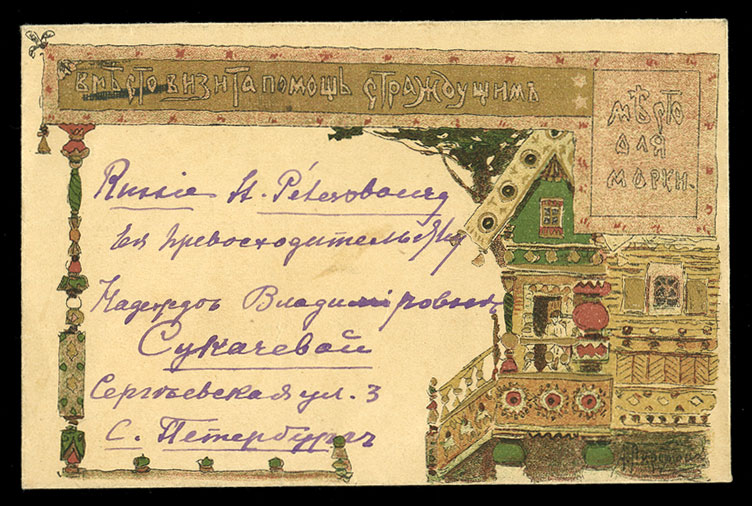 ВМѢСТО ВИЗИТА ПОМОЩЬ СТРАЖДУЩИМЪ
МѢСТО
ДЛЯ
МАРКИ.
Russie St. Pétersbourg
Ея Превосходительству
Надеждѣ Владимировнѣ
Сукачевой
Сергѣевская ул. 3
С. Петербургъ